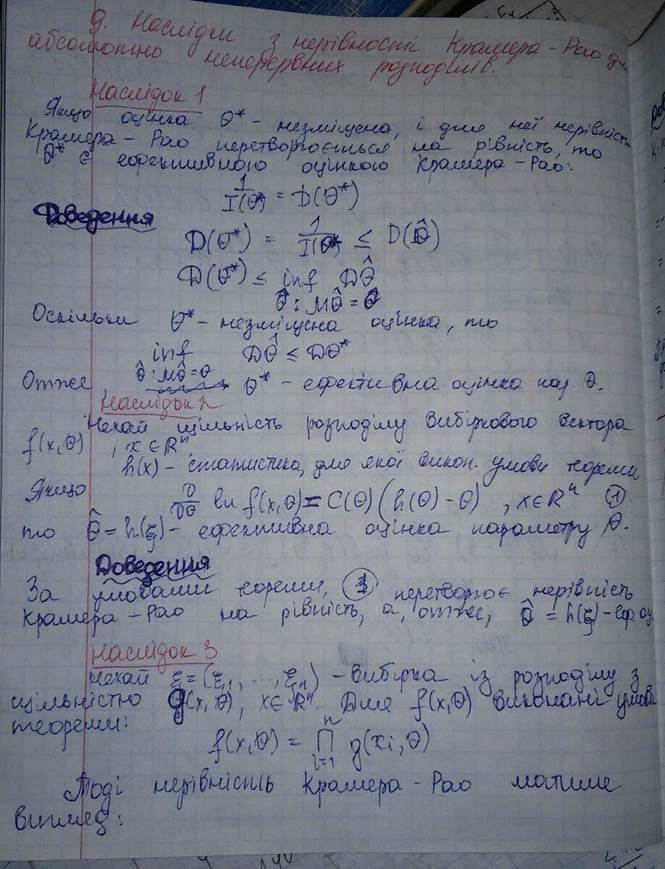 9. Наслідки з нерівності Крамера-Рао для
абсолютно неперервних розподілів.
Наслідок 1
Якщо оцінка θ* - незміщена, і для неї нерівність
Крамера-Рао перетворюється на рівність, то
θ* є ефективною оцінкою Крамера-Рао:
1/I(θ*) = D(θ*)
Доведення
D(θ*) = 1/I(θ*) ≤ D(θ̂)
D(θ*) ≤ inf Dθ̂
θ̂: Mθ̂ = θ
Оскільки θ* - незміщена оцінка, то
inf Dθ̂ ≤ Dθ*
θ̂: Mθ̂ = θ
Отже θ* - ефективна оцінка пар. θ.
Наслідок 2
Нехай щільність розподілу вибіркового вектора
f(x,θ), x∈Rⁿ,
h(x) - статистика, для якої викон. умови теореми
Якщо
D/Dθ ln f(x,θ) = C(θ)(h(θ) - θ), x∈Rⁿ ①
то θ̂ = h(ξ) - ефективна оцінка параметру θ.
Доведення
За умовами теореми, ① перетворює нерівність
Крамера-Рао на рівність, а, отже, θ̂ = h(ξ) - еф. оц
Наслідок 3
Нехай ξ = (ξ₁, ..., ξₙ) - вибірка із розподілу з
щільністю g(x,θ), x∈Rⁿ. Для f(x,θ) виконані умови
теореми:
f(x,θ) = ∏ⁿᵢ₌₁ g(xᵢ,θ)
Тоді нерівність Крамера-Рао матиме
вигляд: